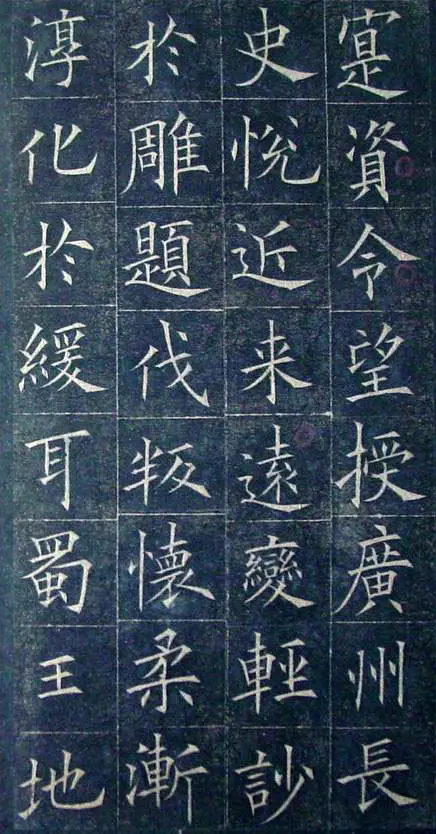 寔資令望授廣州長
史悅近来遠變輕訬
扵雕題伐叛懷柔漸
淳化扵緩耳蜀王地